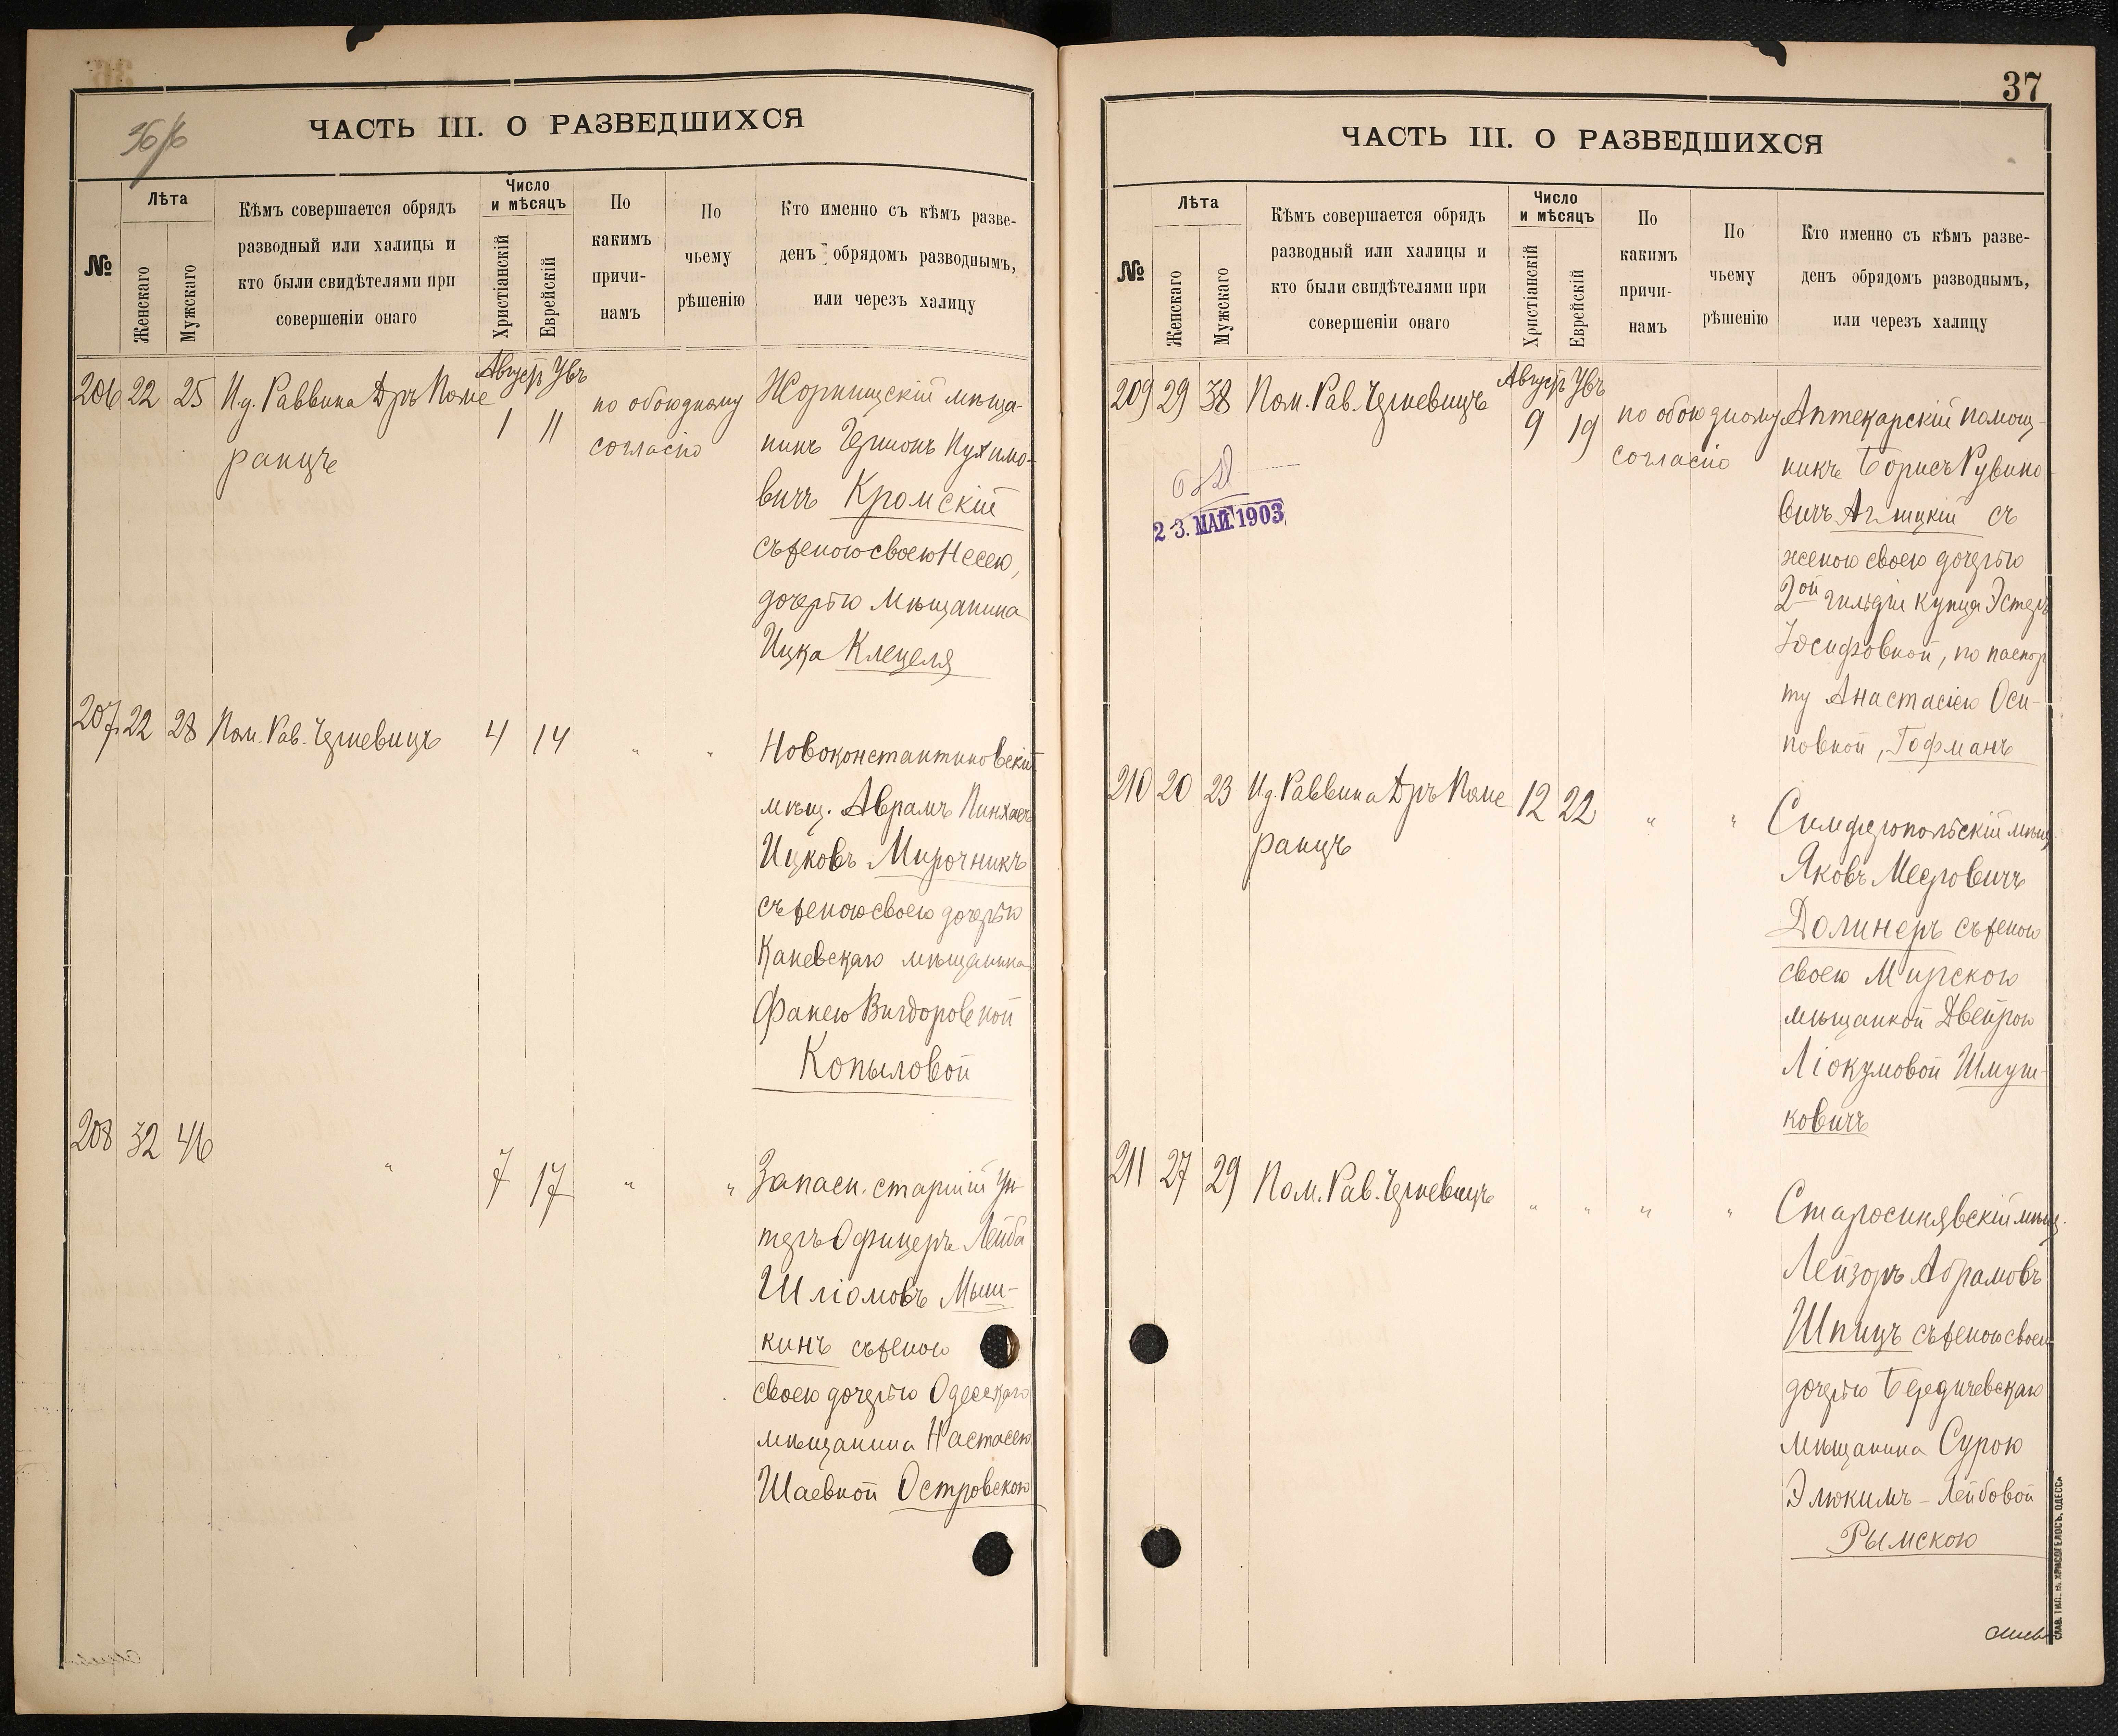 36/б
ЧАСТЬ III. О РАЗВЕДШИХСЯ
№
Лѣта
Женскаго
Мужскаго
Кѣмъ совершается обрядъ
разводный или халицы и
кто были свидѣтелями при
совершеніи онаго
Число
и мѣсяцъ
Христіанскій
Еврейскій
По
какимъ
причи-
намъ
По
чьему
рѣшенію
Кто именно съ кѣмъ разве-
денъ обрядомъ разводнымъ,
или черезъ халицу
206 22 25 И.д. Раввина Дръ Поме
ранцъ
Августъ
1 11
по обоюдному
согласію
мѣща-
нинъ
вичъ Кромскій
съ женою своею Несею,
дочерью Мѣщанина
Ицка Клецеля
207. 22 28 Пом. Рав. 4 14 " "
Новоконстантиновскій
мѣщ. Аврамъ Пинхасъ
Ицковъ Мирочникъ
съ женою своею дочерью
Каневскаго мѣщанина
Фанею Вигдоровной
Копыловой
208 32 46 " 7 17 " "
Запасн. старшій Ун
теръ Офицеръ Лейба
Шліомовъ Мыш-
кинъ съ женою
своею дочерью Одесскаго
мѣщанина Настасею
Шаевной Островскою
37
ЧАСТЬ III. О РАЗВЕДШИХСЯ
№
Лѣта
Женскаго
Мужскаго
Кѣмъ совершается обрядъ
разводный или халицы и
кто были свидѣтелями при
совершеніи онаго
Число
и мѣсяцъ
Христіанскій
Еврейскій
По
какимъ
причи-
намъ
По
чьему
рѣшенію
Кто именно съ кѣмъ разве-
денъ обрядомъ разводнымъ,
или черезъ халицу
209 29 38 Пом. Рав.
Августъ
9 19
по обоюдному
согласію
23. МАЙ. 1903
Аптекарскій помощ-
никъ Борисъ Рувино
вичъ съ
женою своею дочерью
2ой гильдіи купца Эстеръ
Іосифовной, по паспор
ту Анастасіею Оси-
повной, Гофманъ
210 20 23 И.д. Раввина Дръ Поме
ранцъ
12 22 " "
Симферопольскій мѣщ.
Яковъ Мееровичъ
Долинеръ съ женою
своею Мирскою
мѣщанкой Двейрою
Ліокумовой Шмуш-
ковичъ
211 27 29 Пом. Рав. " " " "
Старосинявскій мѣщ.
Лейзоръ Абрамовъ
Шпицъ съ женою своею
дочерью Бердичевскаго
мѣщанина Сурою
Элюкимъ-Лейбовой
Рымскою
СЛАВ. ТИП. Н. ХРИСОГЕЛОСЪ, ОДЕССА